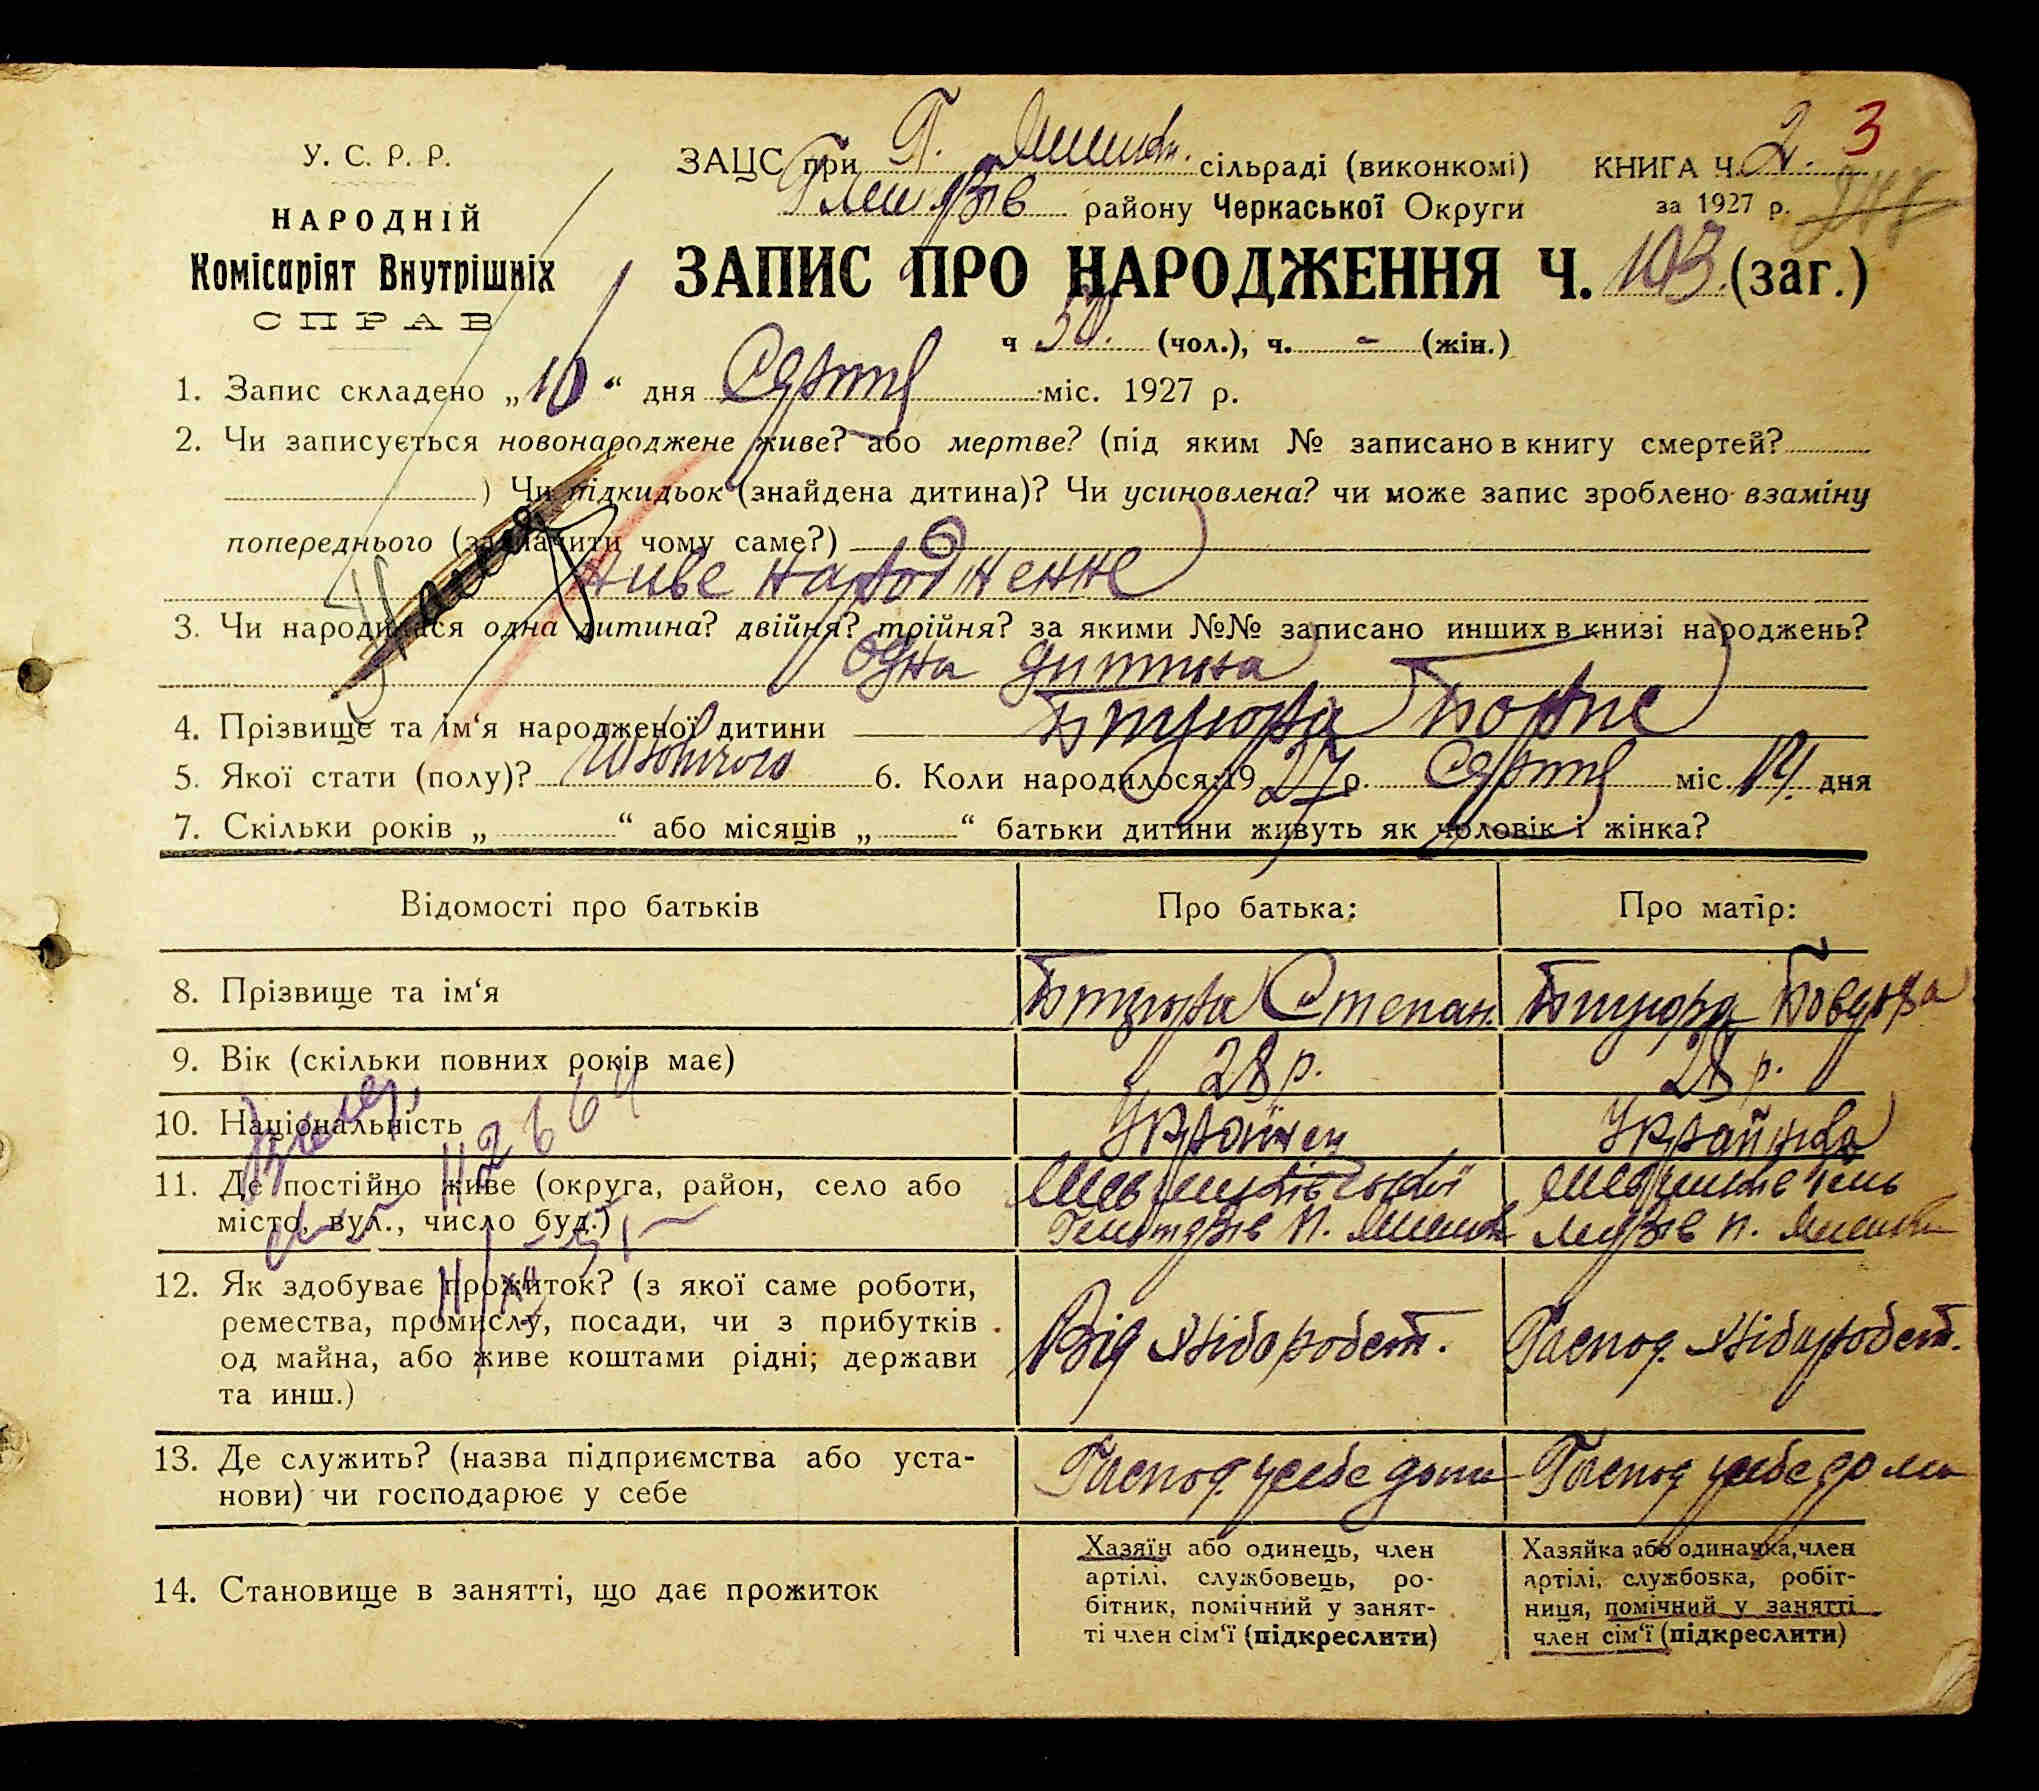 У. С. Р. Р.
НАРОДНІЙ
Комісаріят Внутрішніх
СПРАВ
ЗАЦС при П. сільраді (виконкомі)
району Черкаської Округи
КНИГА Ч. 2. 3
за 1927 р.
ЗАПИС ПРО НАРОДЖЕННЯ Ч. 103 (заг.)
ч 50. (чол.), ч. - (жін.)
1. Запис складено „10“ дня Серпня міс. 1927 р.
2. Чи записується новонароджене живе? або мертве? (під яким № записано в книгу смертей?
) Чи підкидьок (знайдена дитина)? Чи усиновлена? чи може запис зроблено взаміну
попереднього (зазначити чому саме?)
живе народження
3. Чи народилася одна дитина? двійня? трійня? за якими №№ записано инших в книзі народжень?
Одна дитина
4. Прізвище та ім‘я народженої дитини Бтцюра Борис
5. Якої стати (полу)? 6. Коли народилося: 1927 р. Серпня міс. дня
7. Скільки років „ “ або місяців „ “ батьки дитини живуть як чоловік і жінка?
Відомості про батьків Про батька: Про матір:
8. Прізвище та ім‘я Бтцюра Степан
9. Вік (скільки повних років має) 28 р. 28 р.
10. Національність Українец Українка
11. Де постійно живе (округа, район, село або
місто, вул., число буд.)
12. Як здобуває прожиток? (з якої саме роботи,
ремества, промислу, посади, чи з прибутків
од майна, або живе коштами рідні; держави
та инш.)
Від хліборобст. Господ. хліборобст.
13. Де служить? (назва підприємства або уста-
нови) чи господарює у себе
Господ. у себе дома Господ у себе дома
14. Становище в занятті, що дає прожиток
Хазяїн або одинець, член
артілі, службовець, ро-
бітник, помічний у занят-
ті член сім‘ї (підкреслити)
Хазяйка або одиначка, член
артілі, службовка, робіт-
ниця, помічний у занятті
член сім‘ї (підкреслити)